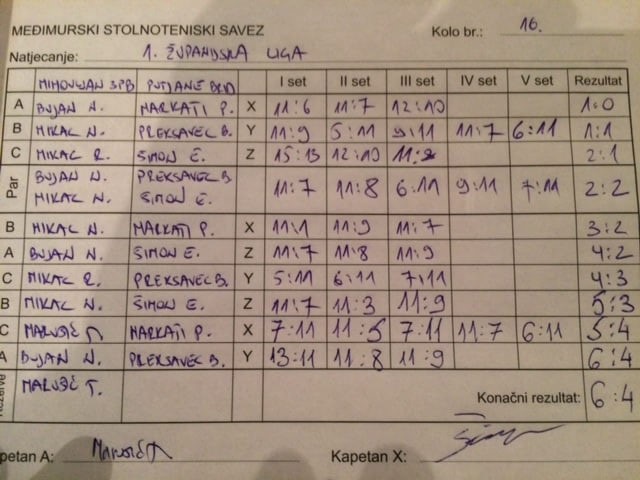 MEĐIMURSKI STOLNOTENISKI SAVEZ Kolo br.: 16.
Natjecanje: 1. ŽUPANIJSKA LIGA
I set II set III set IV set V set Rezultat
A BUJAN N. MARKATI P. X 11:6 11:7 12:10 1:0
B MIKAC N. PREKSAVEC B. Y 11:9 5:11 9:11 11:7 6:11 1:1
C MIKAC R. ŠIMON E. Z 15:13 12:10 2:1
Par BUJAN N. PREKSAVEC B. 11:7 11:8 6:11 9:11 7:11 2:2
MIKAC N. ŠIMON E.
B MIKAC N. MARKATI P. X 11:1 11:9 11:7 3:2
A BUJAN N. ŠIMON E. Z 11:7 11:8 11:9 4:2
C MIKAC R. PREKSAVEC B. Y 5:11 6:11 7:11 4:3
B MIKAC N. ŠIMON E. Z 11:7 11:3 11:9 5:3
C MARUŠIĆ T. MARKATI P. X 7:11 11:5 7:11 11:7 6:11 5:4
A BUJAN N. PREKSAVEC B. Y 13:11 11:8 11:9 6:4
MARUŠIĆ T. Konačni rezultat: 6:4
petan A: Marušić T. Kapetan X: